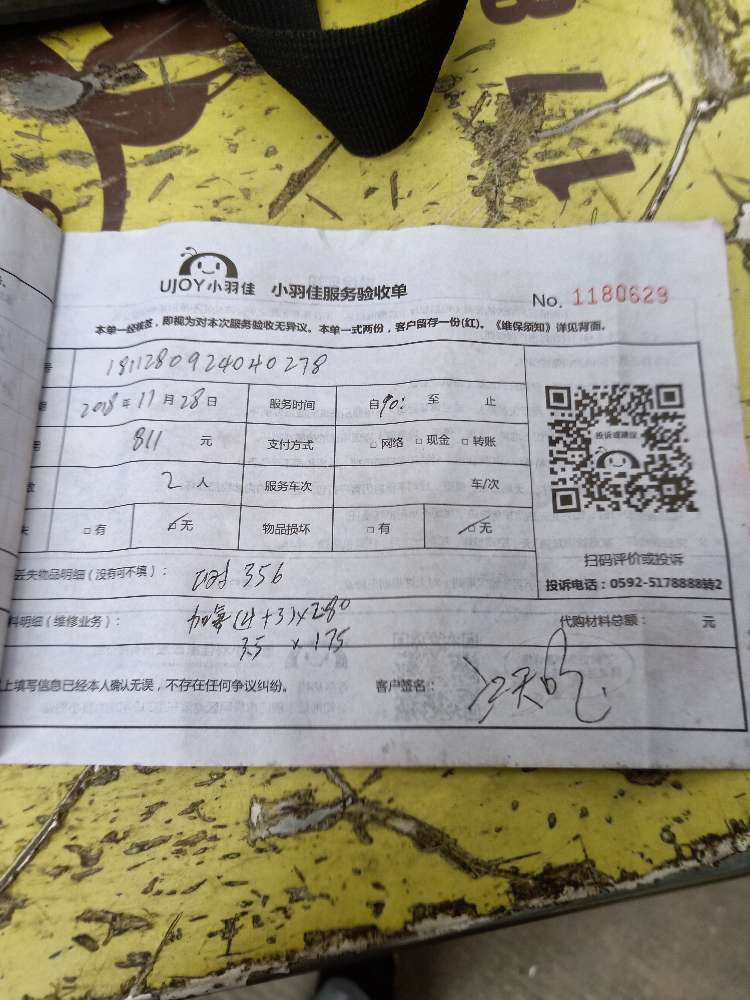 UJOY小羽佳 小羽佳服务验收单
No. 1180629
本单一经接签，即视为对本次服务验收无异议。本单一式两份，客户留存一份(红)。《维保须知》详见背面。
号 1811280924040278
2018 年 11 月 28 日 服务时间 自 至 止
811 元 支付方式 □ 网络 □ 现金 □ 转账
2 人 服务车次 车/次
□ 有 □ 无 物品损坏 □ 有 □ 无
投诉或建议
扫码评价或投诉
丢失物品明细（没有可不填）： 356
投诉电话：0592-5178888转2
料明细（维修业务）： (4+3)×280
代购材料总额： 元
35 × 175
上填写信息已经本人确认无误，不存在任何争议纠纷。 客户签名：